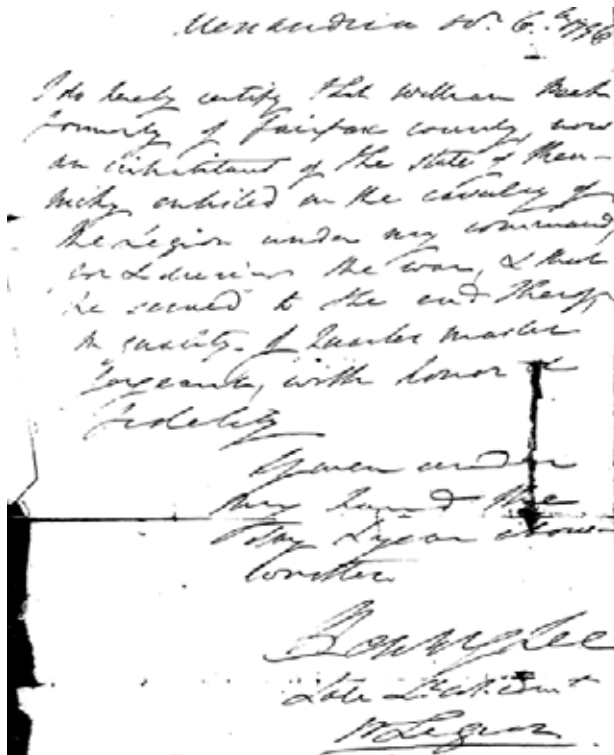 Alexandria 6th 1796
I do hereby certify that William Beck
formerly of Fairfax county, now
an inhabitant of the state of Ken-
tucky enlisted in the cavalry of
the legion under my command,
for & during the war, & that
he served to the end thereof,
in quality of Quarter master
sergeant, with honor &
fidelity
Given under
my hand the
day & year above
written
Henry Lee
Late Lt. Col.
Legion